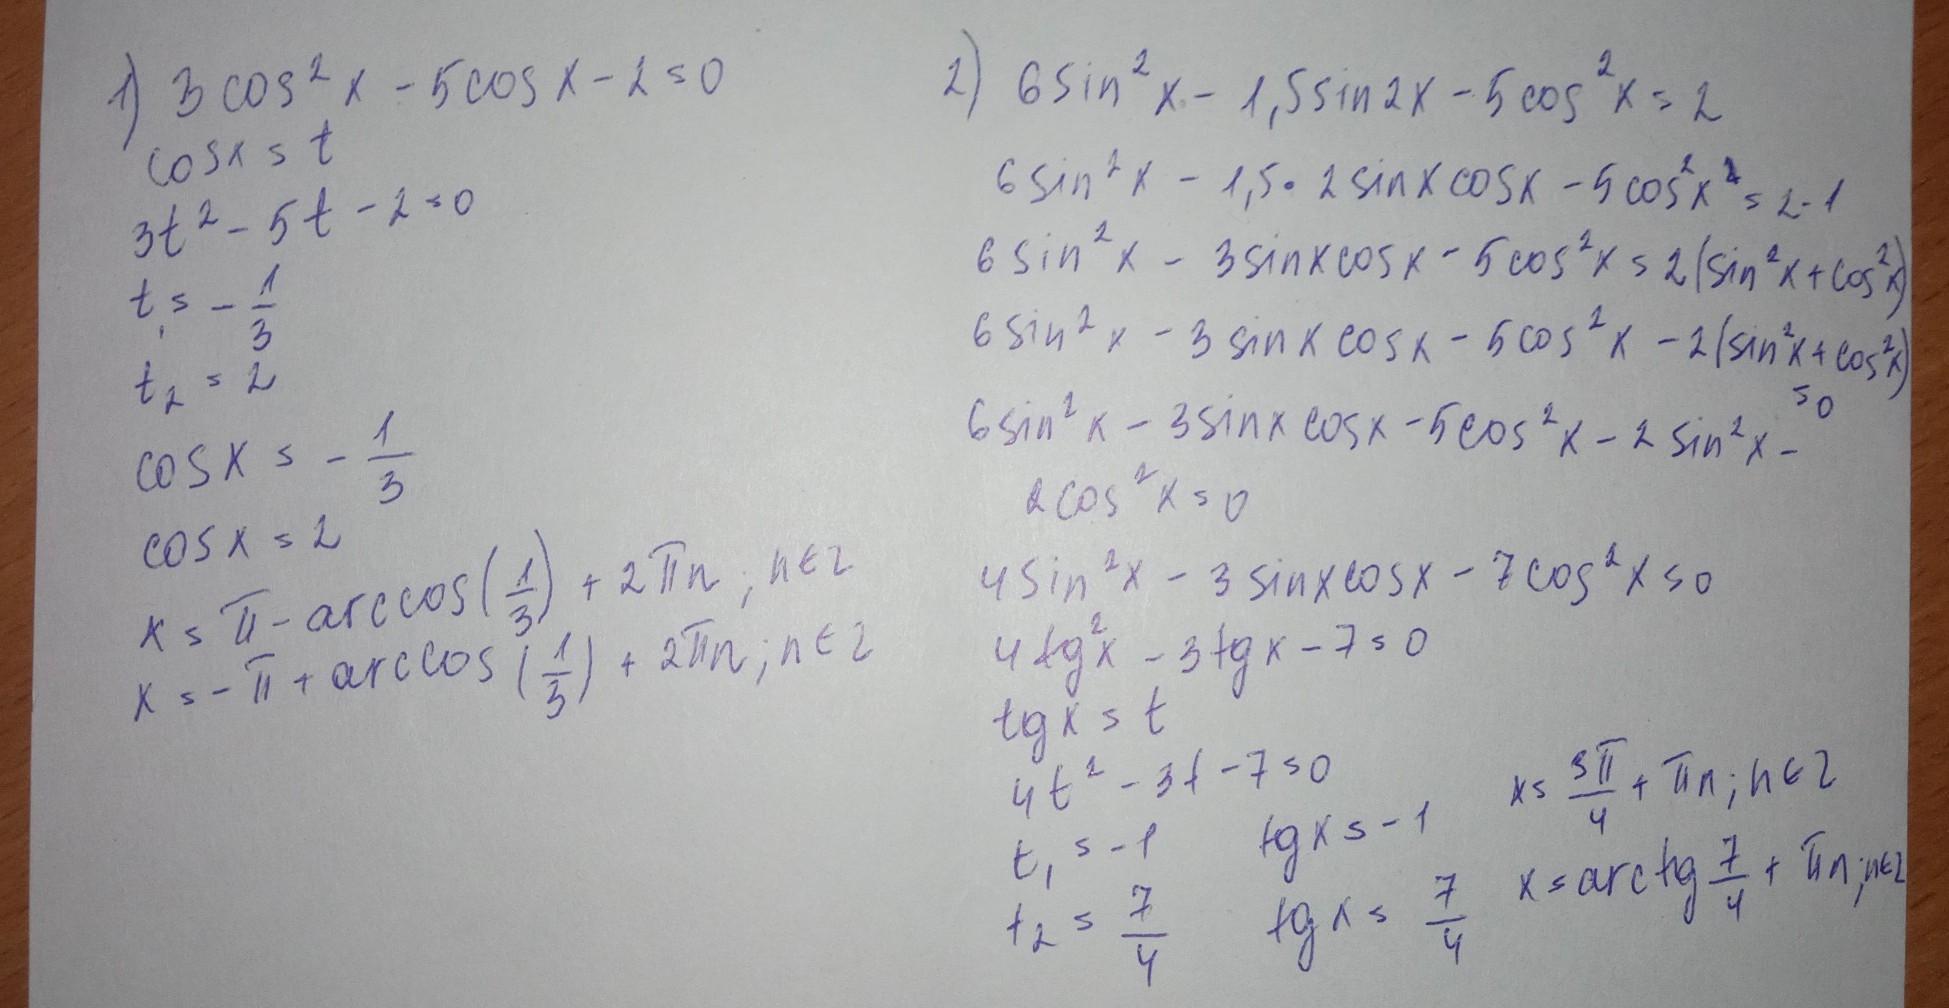 1) 3cos²x - 5cosx - 2 = 0
cosx = t
3t² - 5t - 2 = 0
t₁ = - 1/3
t₂ = 2
cosx = - 1/3
cosx = 2
x = π - arccos(1/3) + 2πn; n∈Z
x = -π + arccos(1/3) + 2πn; n∈Z
2) 6sin²x - 1,5sin2x - 5cos²x = 2
6sin²x - 1,5 · 2sinxcosx - 5cos²x = 2·1
6sin²x - 3sinxcosx - 5cos²x = 2(sin²x + cos²x)
6sin²x - 3sinxcosx - 5cos²x - 2(sin²x + cos²x)
= 0
6sin²x - 3sinxcosx - 5cos²x - 2sin²x -
2cos²x = 0
4sin²x - 3sinxcosx - 7cos²x = 0
4tg²x - 3tgx - 7 = 0
tgx = t
4t² - 3t - 7 = 0
t₁ = -1 tgx = -1 x = 3π/4 + πn; n∈Z
t₂ = 7/4 tgx = 7/4 x = arctg 7/4 + πn; n∈Z